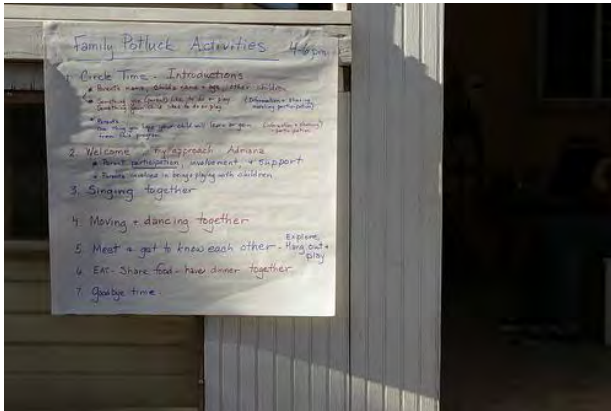 Family Potluck Activities 4-6 pm
1. Circle Time - Introductions
Parents name, child's name + age, other children
Something you (parent) like to do or play (Information + sharing
Something your child likes to do or play participation)
Parents
One thing you hope your child will learn or gain (information + sharing)
from this program - participation
2. Welcome - my approach Adriana
Parent participation, involvement, + support
Parents involved in being + playing with children
3. Singing together
4. Moving + dancing together
5. Meet + get to know each other - Explore,
Hang out +
play
6. EAT - Share food - have dinner together
7. Goodbye time.